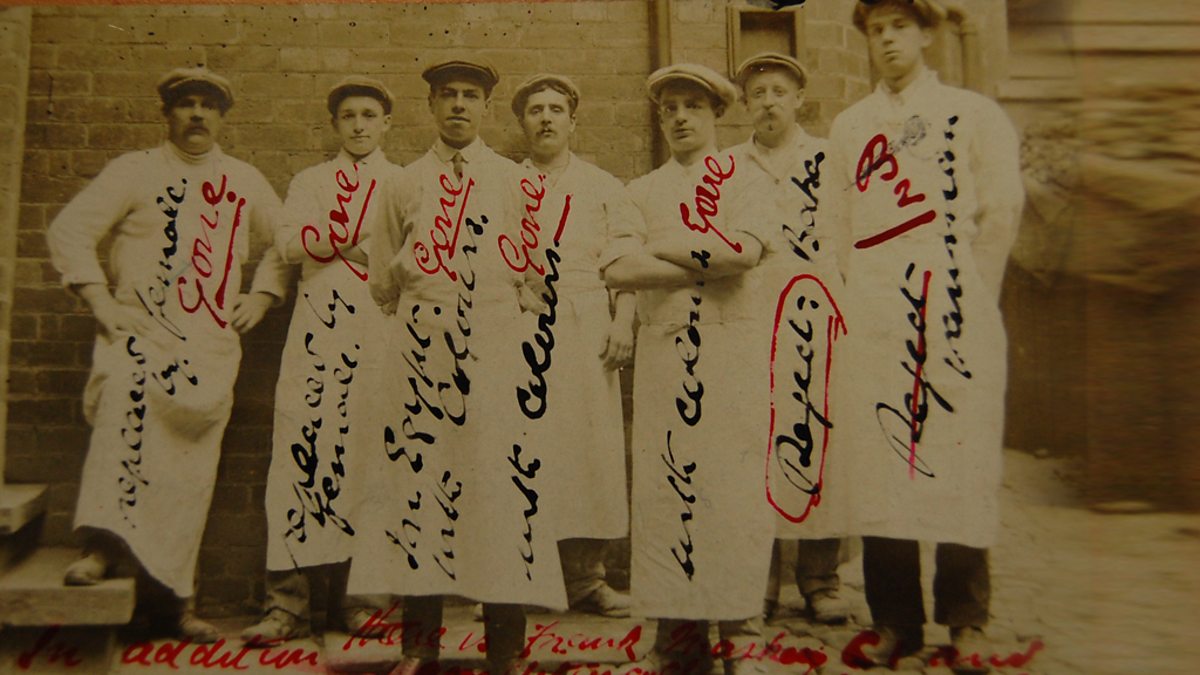 replaced
by female.
Gone.
replaced by
female.
Gone.
In Egypt.
with Colours.
Gone.
with colours.
Gone.
with colours
Gone
Baker
Reject:
B2
Reject.
In addition there is Frank
and